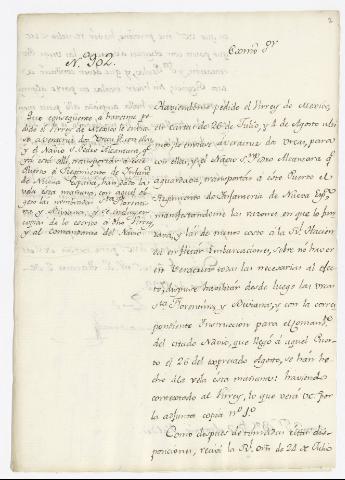 2
Exmo Sr.
N. 902.
Que consequente, a haverme pe-
dido el Virrey de Mexico le envia-
se, a Veracruz dos Urcas
y el Navio S. Pedro Alcantara, qe
ya está allí, transportar a este
Puerto el Regimiento de Infanta
de Nueva España, han dado la
vela esta mañana, con aquel
to las nombradas Sta Floren-
tina y Viviana, y se incluyen
copias de lo escrito a dho Virrey
y al comandante del Navio.
Haviendome pedido el Virrey de Mexico,
en Cartas de 26 de Julio, y 4 de Agosto ulti-
mo, le enviase, á Veracruz dos Urcas, para
con ellas, y el Navio Sn Pedro Alcantara qe
aguardava, transportar á este Puerto el
Regimiento de Infanteria de Nueva Espa
manifestandome las razones en que lo fun-
dava, y las de menos costo á la Rl Hacien-
da en fletar Embarcaciones, sobre no haver
en Veracruz todas las necesarias al efec-
to, dispuse havilitar desde luego las Urcas
Sta Florentina, y Viviana, y con la corres-
pondiente Instruccion para el Comandte
del citado Navio, que llegó á aquel Puer-
to el 26 del expresado Agosto, se han he-
cho á la vela esta mañana: haviendo
contestado al Virrey, lo que verá V.E. por
la adjunta copia no 1o
Como despues de tomadas estas dis-
posiciones, recivi la Rl Orn de 24 de Julio